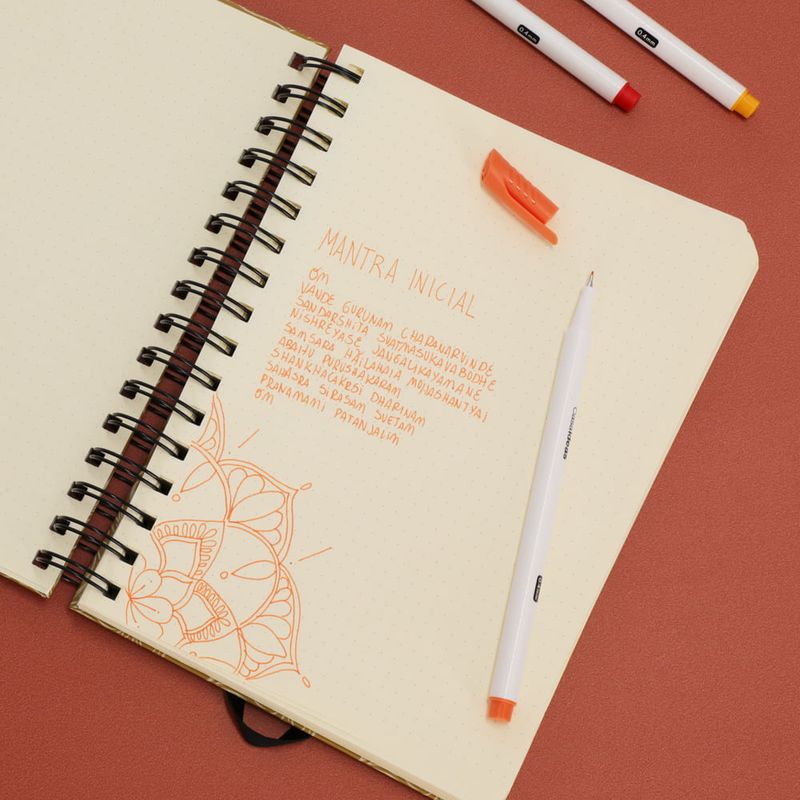 MANTRA INICIAL
OM
VANDE GURUNAM CHARANARVINDE
SANDARSHITA SVATMASUKAVABODHE
NISHREYASE JANGALIKAYAMANE
SAMSARA HALAHALA MOHASHANTYAI
ABAHU PURUSHAKARAM
SHANKHACAKRSI DHARINAM
SAHASRA SIRASAM SVETAM
PRANAMAMI PATANJALIM
OM
0.4mm
0.4mm
ideas
0.4mm